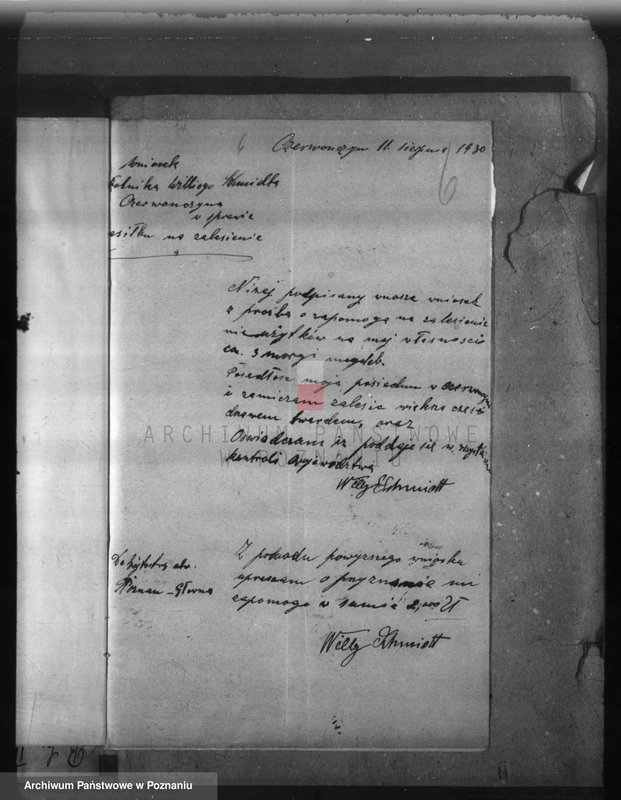 6
Czerwonczyn 11. sierpnia 1930
6
Wniosek
rolnika Williego Schmidta
Czerwonczyna
w sprawie
zasiłku na zalesienie
Niżej podpisany wnoszę wniosek
z prośbą o zapomogę na zalesienie
nieużytków na mej własności
ca. 3 morgi magdeb.
Posiadłość moją posiadam w
i zamierzam zalesić większą część
drzewem twardem, oraz
Oświadczam iż poddaję się w
kontroli Województwa
Willy Schmidt
Poznan – Główna
Z powodu powyższego wniosku
upraszam o przyznanie mi
zapomogę w sumie zł
Willy Schmidt
ARCHIWUM PAŃSTWOWE
W POZNANIU
Archiwum Państwowe w Poznaniu